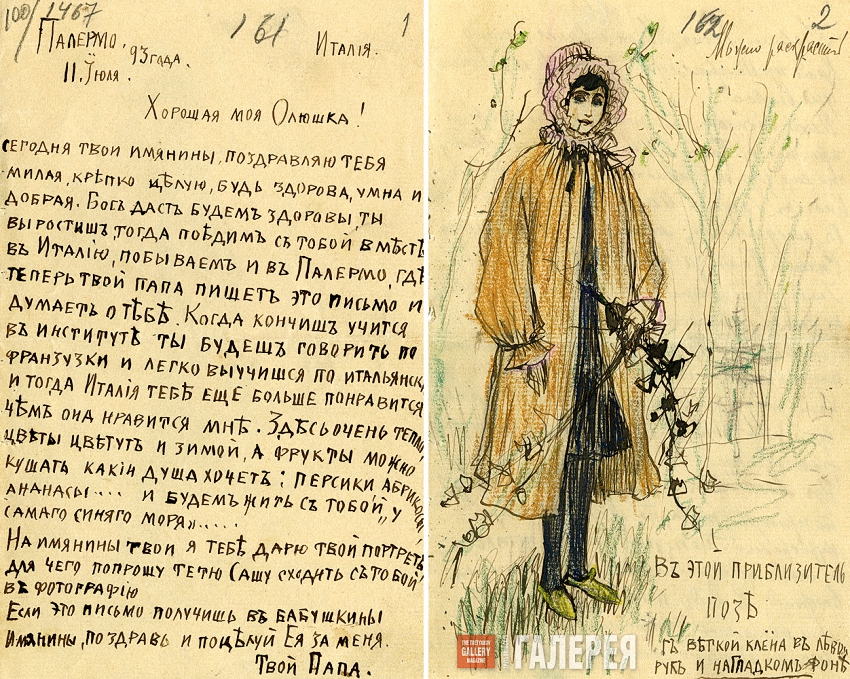 100/1467
161
1
Палермо.
93 года.
Италія.
11. Їюля.
Хорошая моя Олюшка!
Сегодня твои имянины, поздравляю тебя
милая, крѣпко цѣлую, будь здорова, умна и
добрая. Богъ дастъ будемъ здоровы, ты
выростишъ, тогда поѣдимъ съ тобой вмѣстѣ
въ Италію, побываемъ и въ Палермо, гдѣ
теперь твой папа пишетъ это письмо и
думаетъ о тѣбѣ. Когда кончишъ учится
въ институтѣ ты будешъ говорить по
французки и легко выучишся по итальянски,
и тогда Италія тебѣ ещё больше понравится
чѣмъ она нравится мнѣ. Здѣсь очень тепло,
цвѣты цвѣтутъ и зимой, а фрукты можно
кушать какіи душа хочетъ: персики абрикосы
ананасы.... и будемъ жить съ тобой „у
самаго синяго моря".....
На имянины твои я тебѣ дарю твой портретъ
для чего попрошу тетю Сашу сходить съ тобой
въ фотографію
Если это письмо получишь въ бабушкины
имянины, поздравь и поцѣлуй Ея за меня.
Твой Папа.
162
2
Можно
Въ этой приблизитель
позѣ
съ вѣткой клёна въ лѣвой
рукѣ и на гладкомъ фонѣ
THE TRETYAKOV
GALLERY
MAGAZINE
ГАЛЕРЕЯ